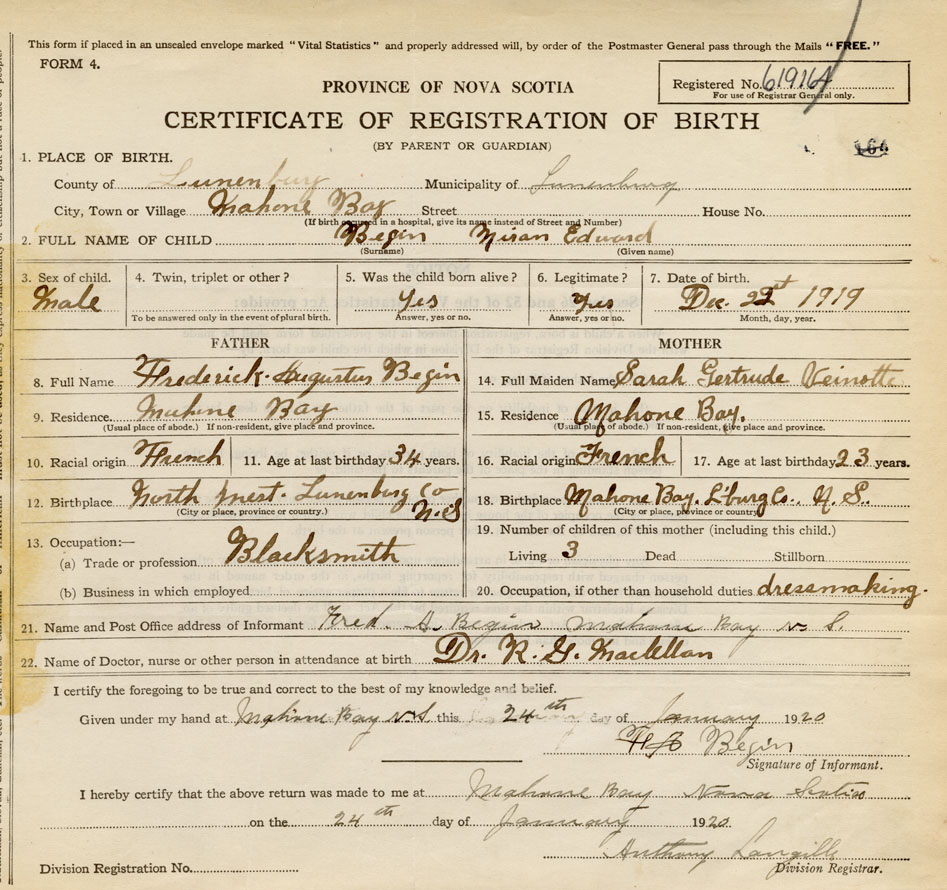 This form if placed in an unsealed envelope marked "Vital Statistics" and properly addressed will, by order of the Postmaster General pass through the Mails "FREE."
FORM 4.
Registered No. 61916A
For use of Registrar General only.
PROVINCE OF NOVA SCOTIA
CERTIFICATE OF REGISTRATION OF BIRTH
(BY PARENT OR GUARDIAN)
166
1. PLACE OF BIRTH.
County of Lunenburg Municipality of Lunenburg
City, Town or Village Mahone Bay Street House No.
(If birth occured in a hospital, give its name instead of Street and Number)
2. FULL NAME OF CHILD Begin Edward
(Surname) (Given name)
3. Sex of child. 4. Twin, triplet or other? 5. Was the child born alive? 6. Legitimate? 7. Date of birth.
Male Yes Yes Dec. 1919
To be answered only in the event of plural birth. Answer, yes or no. Answer, yes or no. Month, day, year.
FATHER
8. Full Name Frederick Augustus Begin
9. Residence. Mahone Bay
(Usual place of abode.) If non-resident, give place and province.
10. Racial origin French 11. Age at last birthday 34 years.
12. Birthplace North West. Lunenburg Co
(City or place, province or country.) N.S
13. Occupation:—
(a) Trade or profession Blacksmith
(b) Business in which employed
MOTHER
14. Full Maiden Name Sarah Gertrude Veinotte
15. Residence Mahone Bay.
(Usual place of abode.) If non-resident, give place and province.
16. Racial origin French 17. Age at last birthday 23 years.
18. Birthplace Mahone Bay, L'burg Co., N.S.
(City or place, province or country)
19. Number of children of this mother (including this child.)
Living 3 Dead Stillborn
20. Occupation, if other than household duties dressmaking.
21. Name and Post Office address of Informant Fred. A. Begin Mahone Bay N S.
22. Name of Doctor, nurse or other person in attendance at birth Dr. R. G. MacLellan
I certify the foregoing to be true and correct to the best of my knowledge and belief.
Given under my hand at Mahone Bay N.S this 24th day of January 1920
FA Begin
Signature of Informant.
I hereby certify that the above return was made to me at Mahone Bay Nova Scotia
on the 24th day of January 1920.
Anthony Langille
Division Registration No. Division Registrar.